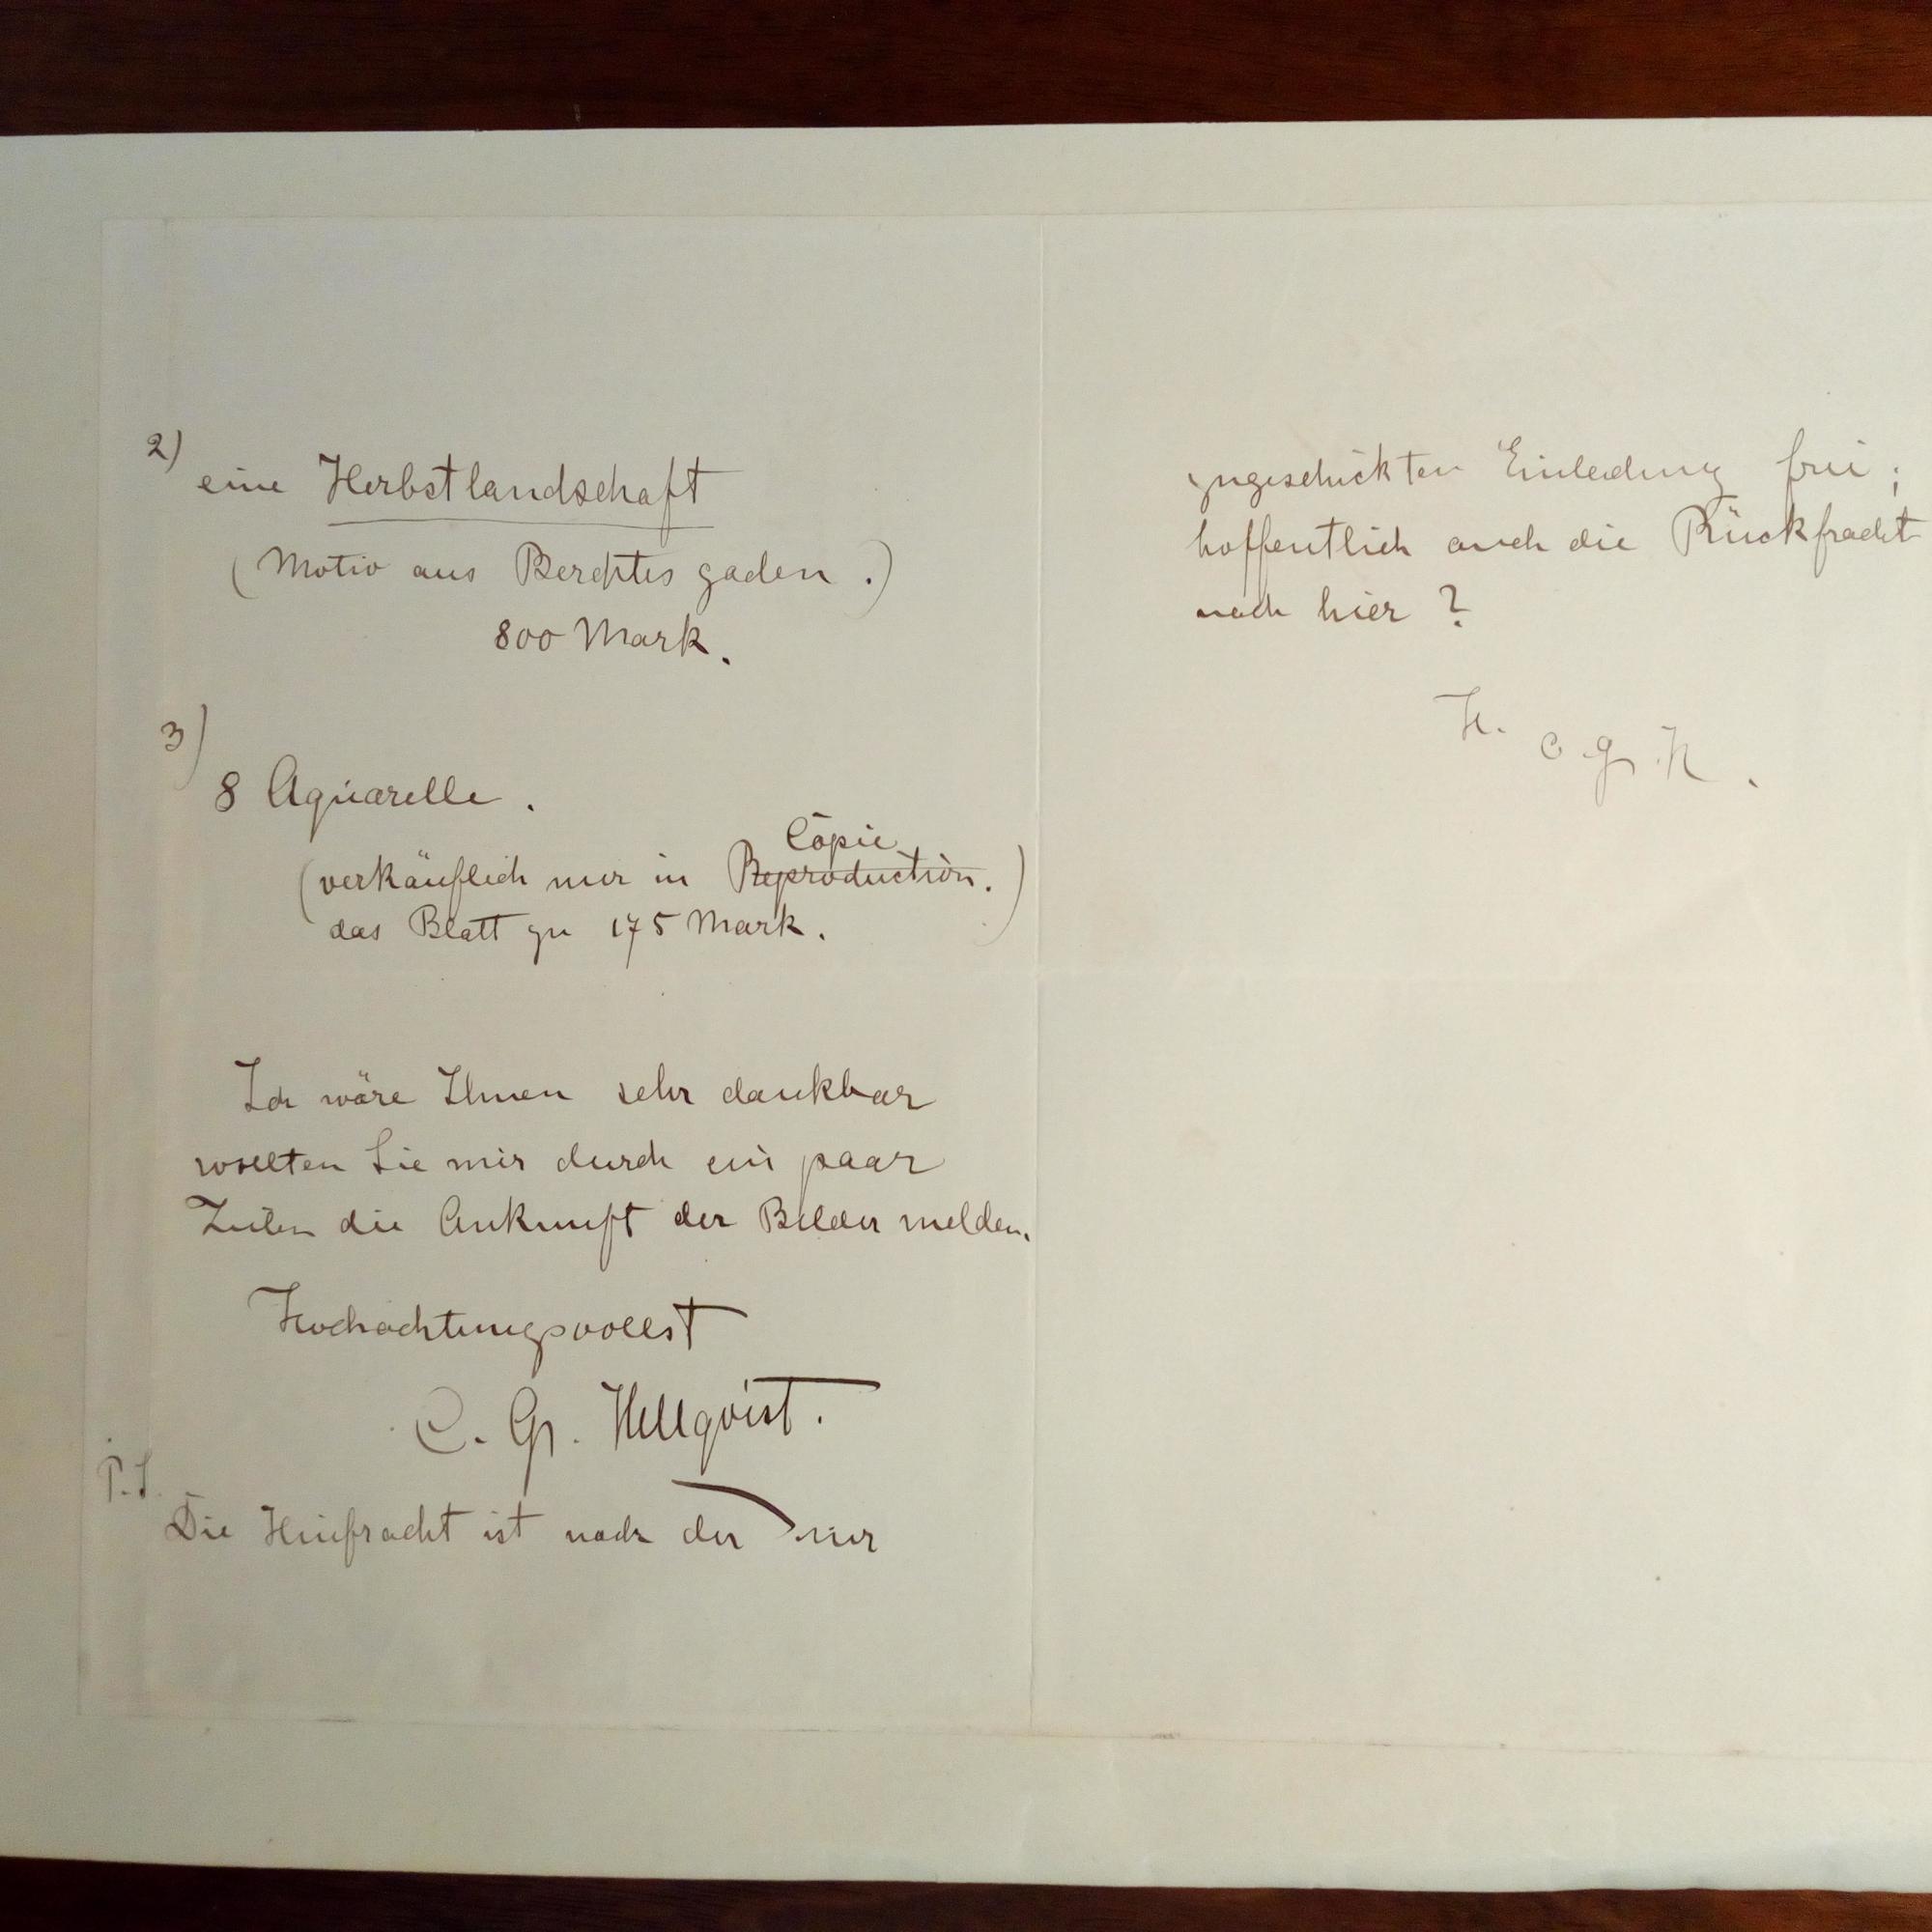 2)
eine Herbstlandschaft
(Motiv aus Berchtesgaden.)
800 Mark.
3)
8 Aquarelle.
Copie
(verkäuflich nur in Reproduction.)
das Blatt zu 175 Mark.
Ich wäre Ihnen sehr dankbar
wollten Sie mir durch ein paar
Zeilen die Ankunft der Bilder melden.
Hochachtungsvollst
C. G. Hellqvist.
P.S.
Die Hinfracht ist nach der mir
zugeschickten Einledung frei;
hoffentlich auch die Rückfracht
nach hier?
H. C G H.